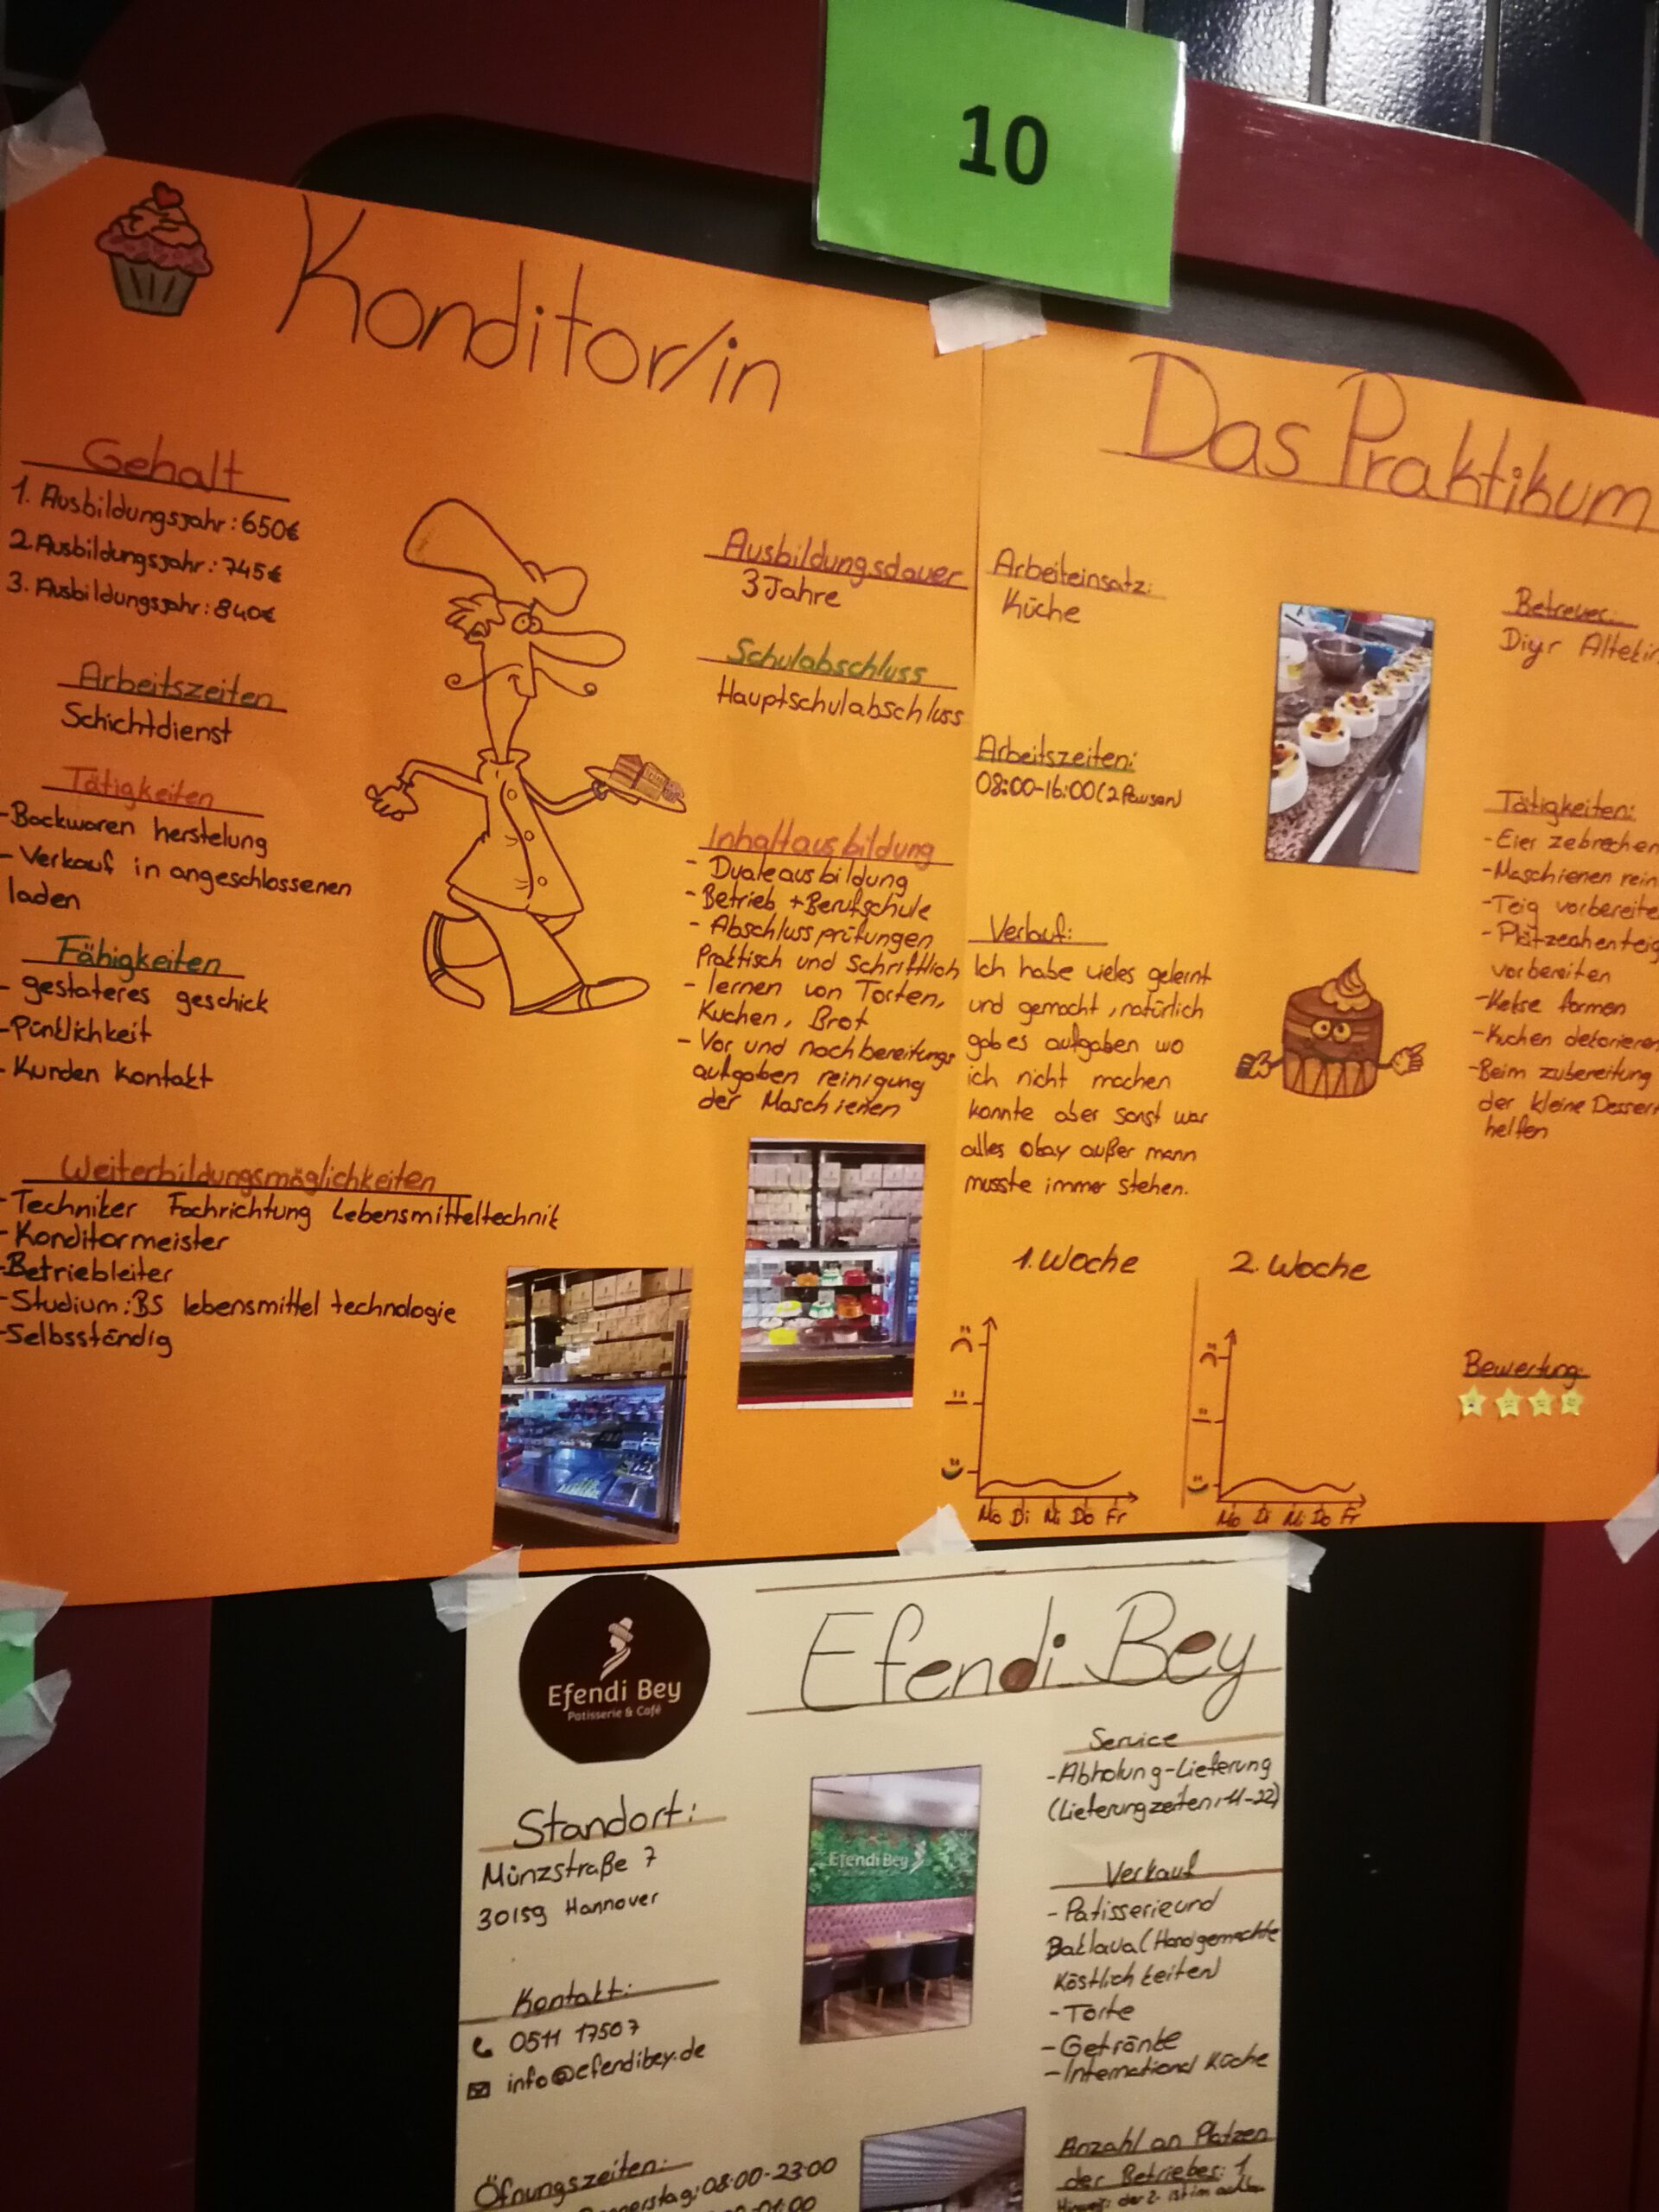 10
Konditor/in
Gehalt
1. Ausbildungsjahr: 650€
2. Ausbildungsjahr: 745€
3. Ausbildungsjahr: 840€
Arbeitszeiten
Schichtdienst
Tätigkeiten
-Backwaren herstelung
- Verkauf in angeschlossenen
laden
Fähigkeiten
- gestateres geschick
-Pünklichkeit
- Kunden kontakt
Weiterbildungsmöglichkeiten
-Techniker Fachrichtung Lebensmitteltechnik
-Konditormeister
-Betriebleiter
-Studium: BS lebensmittel technologie
-Selbsständig
Ausbildungsdauer
3 Jahre
Schulabschluss
Hauptschulabschluss
Inhaltausbildung
- Dualeausbildung
- Betrieb + Berufschule
- Abschlussprüfungen
Praktisch und Schriftlich
- lernen von Torten,
Kuchen, Brot
- Vor und nachbereitungs
aufgaben reinigung
der Maschienen
Das Praktikum
Arbeiteinsatz:
Küche
Arbeitszeiten:
08:00-16:00 (2 Pausen)
Verlauf:
Ich habe vieles gelernt
und gemacht, natürlich
gab es aufgaben wo
ich nicht machen
konnte aber sonst war
alles okay außer mann
musste immer stehen.
Betreuer:
Diyr
Tätigkeiten:
-Eier zebrechen
-Maschienen
-Teig
-Plätzechenteig
vorbereiten
-Kekse formen
-Kuchen dekorieren
-Beim zubereitung
der kleine
helfen
1. Woche
Mo Di Mi Do Fr
2. Woche
Mo Di Mi Do Fr
Bewertung:
Efendi Bey
Patisserie & Café
Efendi Bey
Standort:
Münzstraße 7
30159 Hannover
Kontakt:
0511 17507
info@efendibey.de
Öfnungszeiten:
08:00-23:00
Efendi Bey
Service
-Abholung-Lieferung
(Lieferungzeiten: 11-22)
Verkauf
- Patisserie und
Baklava (Handgemachte
Köstlichkeiten)
- Torte
- Getränke
- International Küche
Anzahl an Plätzen
der Betriebes: 1